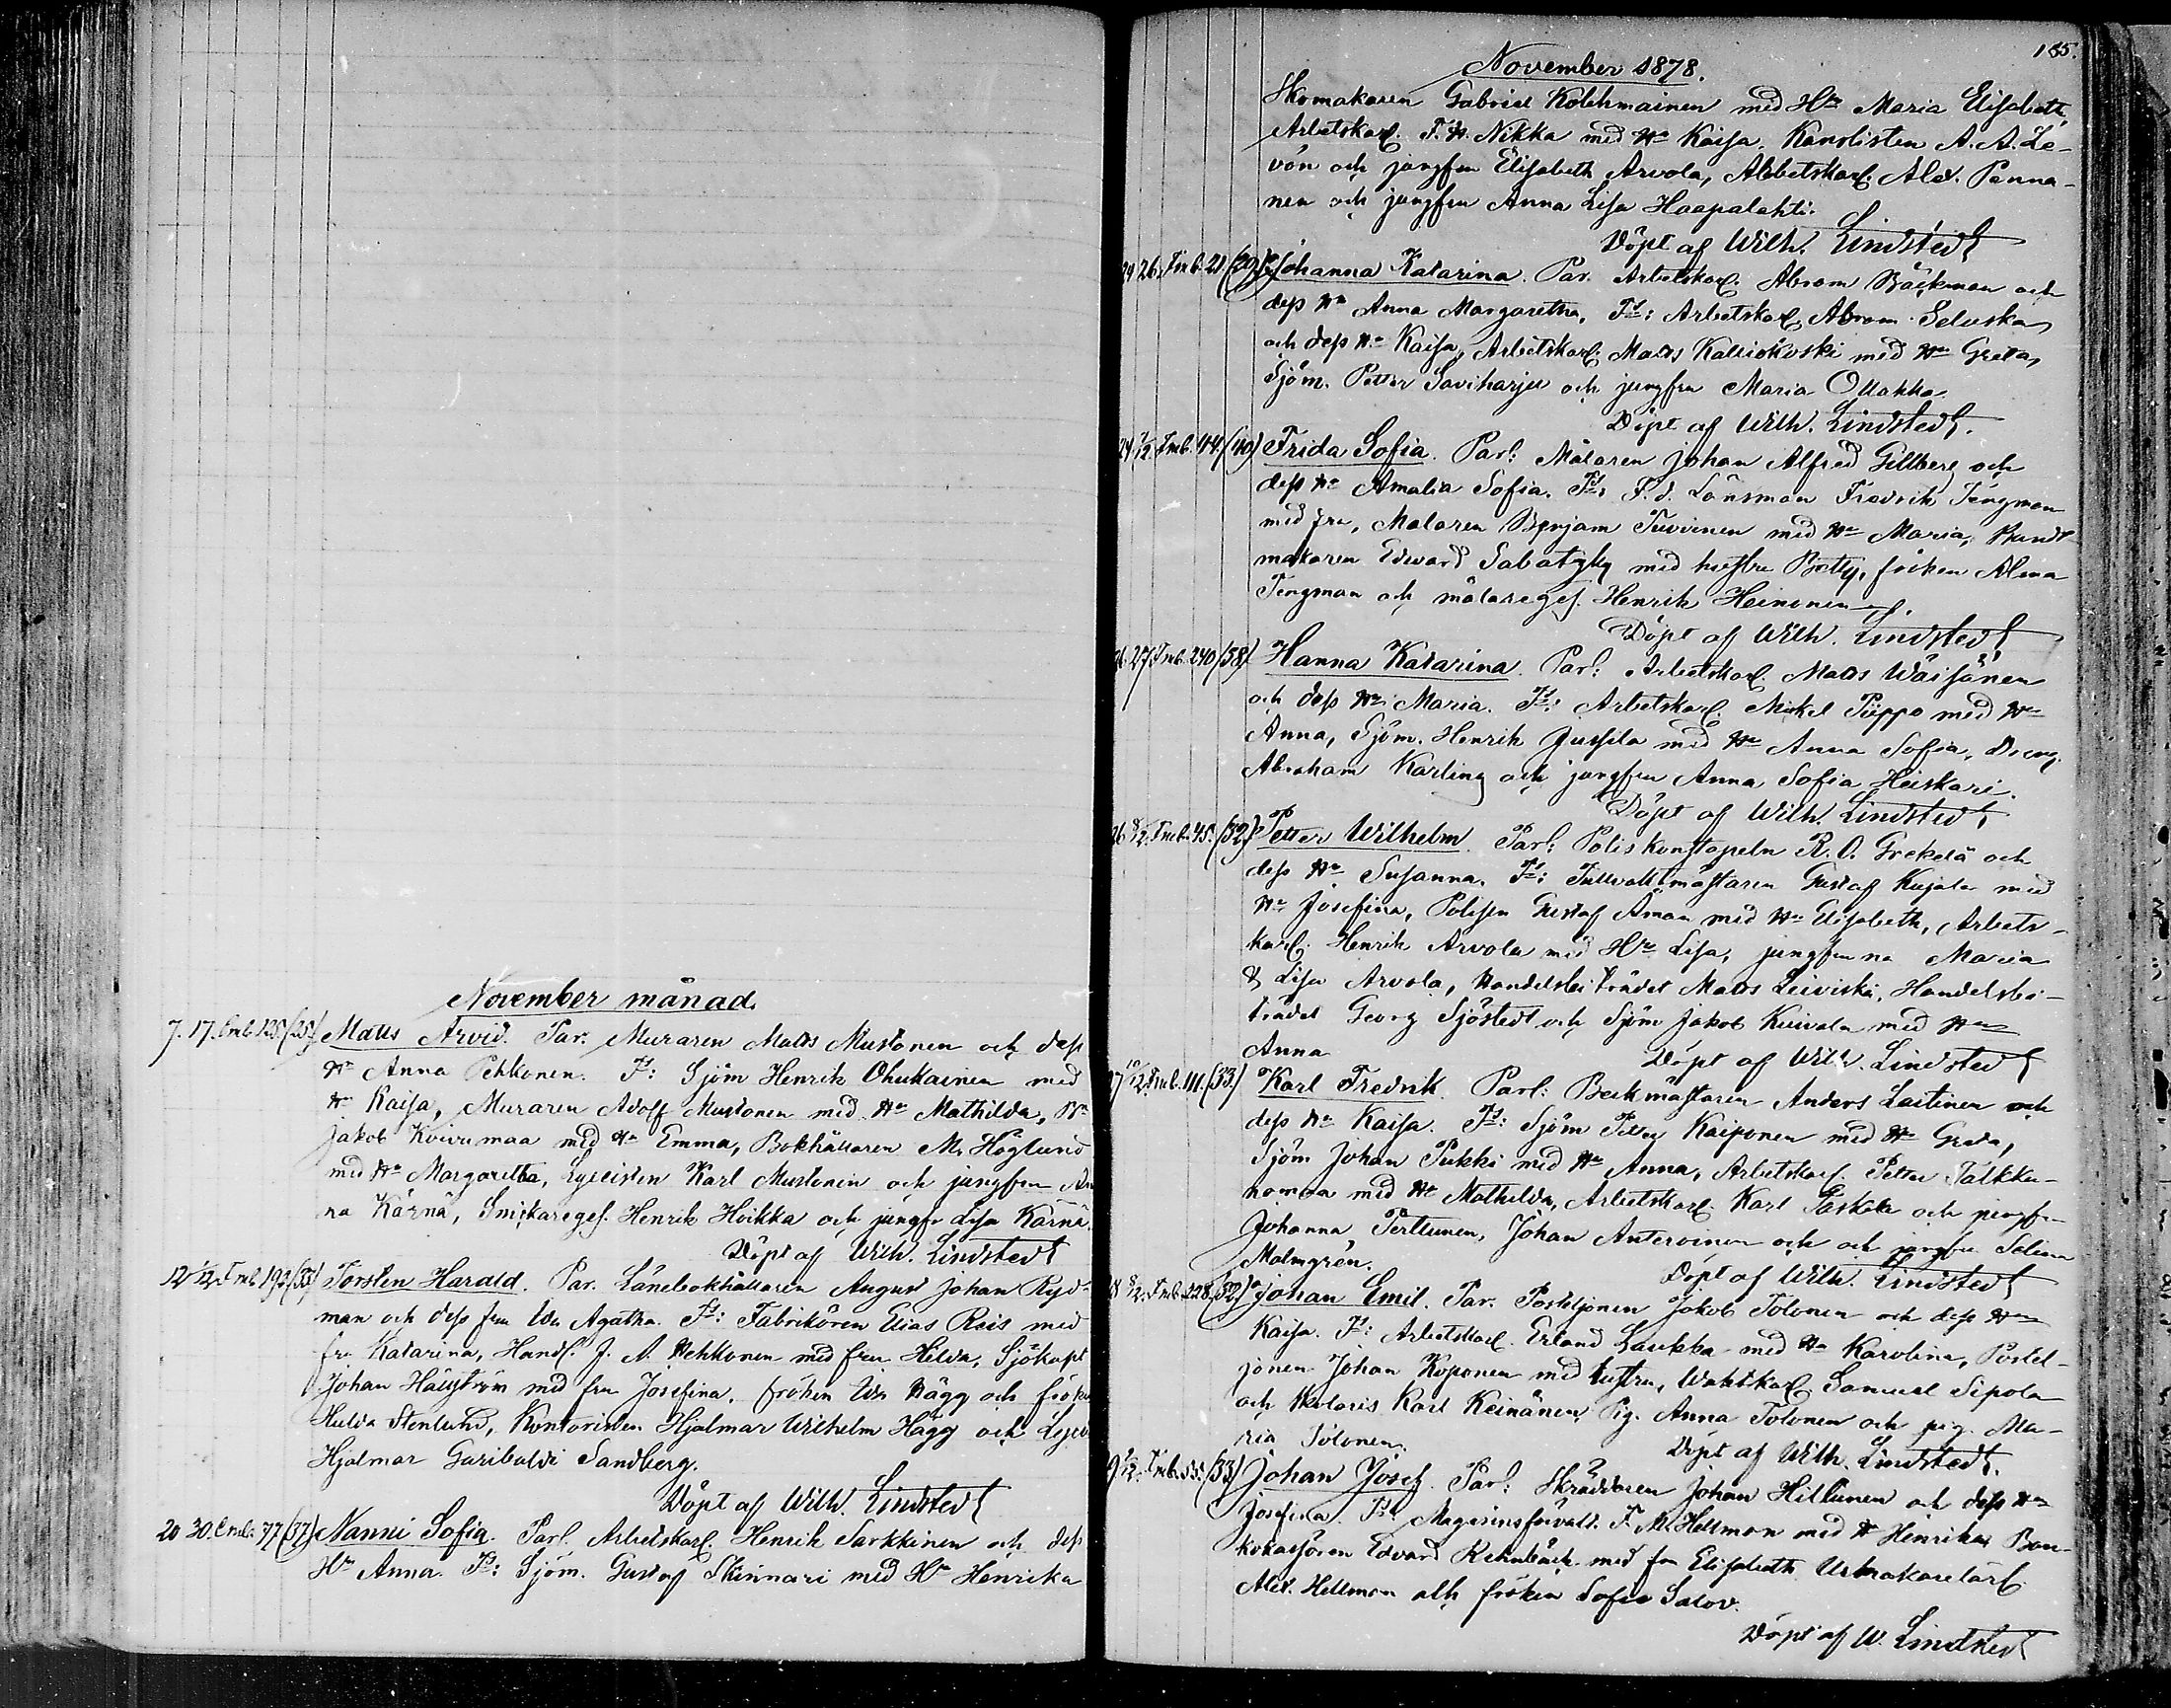 November månad.
7. 17. Tmb. 125 (25) Matts Arvid. Par. Muraren Matts Mustonen och dess
Hu Anna Pehkonen. Ts: Sjöm Henrik Ohukainen med
Hu Kaisa, Muraren Adolf Mustonen med Hu Mathilda,
Jakob Koivumaa med Hu Emma, Bokhållaren M. Höglund
med Hu Margaretha, Lyceisten Karl Mustonen och jungfrun An
na Kärnä, Snickareges. Henrik Hoikka och jungfr Lisa Kärnä.
Döpt af Wilh. Lindstedt
12 1/12. Tmb. 192 (33) Torsten Harald. Par. Länebokhållaren August Johan Ryd-
man och dess fru Ida Agatha. Ts: Fabrikören Elias Reis med
fru Katarina, Handl. J. A. Pehkonen med fru Hilda, Sjökapt
Johan Häggström med fru Josefina, fröken Ida Hägg och fröken
Hulda Stenlund, Kontoristen Hjalmar Wilhelm Hägg och
Hjalmar Garibaldi Sandberg.
Döpt af Wilh. Lindstedt
20 30. Tmb. 77 (37) Nanni Sofia. Parl. Arbetskarl. Henrik Sarkkinen och dess
Hu Anna. Ts: Sjöm. Gustaf Skinnari med Hu Henrika
185.
November 1878.
Skomakaren Gabriel Kolehmainen med Hu Maria Elisabeth,
Arbetskarl. F. H. Nikka med Hu Kaisa. Kanslisten A. A. Le-
vón och jungfrun Elisabeth Arvola, Arbetskarl. Alex. Panna-
nen och jungfrun Anna Lisa Haapalahti.
Döpt af Wilh. Lindstedt
24 26. Tmb. 21 (29) Johanna Katarina. Par. Arbetskarl. Abram Bäckman och
dess Hu Anna Margaretha, Ts: Arbetskarl. Abram Seluska
och dess Hu Kaisa, Arbetskarl. Matts Kalliokoski med Hu Greta,
Sjöm. Petter Saviharju och jungfrun Maria Ollakka.
Döpt af Wilh. Lindstedt.
24 1/12. Tmb. 44 (40) Frida Sofia. Parl: Målaren Johan Alfred Gillberg och
dess Hu Amalia Sofia. Ts: F.d. Länsman Fredrik Tengman
med fru, Målaren Benjam Tuvinen med Hu Maria, Bundt-
makaren Edward Sabatzky med hustru Betty, fröken Alma
Tengman och målareges. Henrik Heinonen.
Döpt af Wilh. Lindstedt
26. 27. Tmb. 240 (38) Hanna Katarina. Parl: Arbetskarl. Matts Wäisänen
och dess Hu Maria. Ts: Arbetskarl. Mickel Piippo med Hu
Anna, Sjöm. Henrik Jussila med Hu Anna Sofia, Dreng.
Abraham Karling och jungfrun Anna Sofia Heiskari.
Döpt af Wilh. Lindstedt
26 8/12. Tmb. 45. (32) Petter Wilhelm. Parl: Poliskonstapeln R. O. Grekelä och
dess Hu Susanna. Ts: Tullvaktmästaren Gustaf Kujala med
Hu Josefina, Polisen Gustaf Åman med Hu Elisabeth, Arbets-
karl. Henrik Arvola med Hu Lisa, jungfruna Maria
& Lisa Arvola, Handelsbiträdet Matts Leiviskä, Handelsbi-
trädet Georg Sjöstedt och Sjöm Jakob Kuivala med Hu
Anna
Döpt af Wilh. Lindstedt
27 10/12. Tmb. 111. (33) Karl Fredrik. Parl: Beckmästaren Anders Laitinen och
dess Hu Kaisa. Ts: Sjöm Petter Kaiponen med Hu Greta,
Sjöm Johan Pukki med Hu Anna, Arbetskarl. Petter Talkku-
nomaa med Hu Mathilda, Arbetskarl. Karl Paskala och jungfru
Johanna Perttunen, Johan Anteroinen och och jungfru Selina
Malmgrén.
Döpt af Wilh. Lindstedt
28 8/12. Tmb. 228. (32) Johan Emil. Par. Postiljonen Jakob Tolonen och dess Hu
Kaisa. Ts: Arbetskarl. Erland Laukka med Hu Karolina, Postil-
jonen Johan Koponen med hustru, Waktkarl. Samuel Sipola
och Karl Keinänen, Pig. Anna Tolonen och pig. Ma-
ria Tolonen.
Döpt af Wilh. Lindstedt.
9/12. Tmb. 55. (33) Johan Josef. Parl: Skräddaren Johan Hiltunen och dess Hu
Josefina. Ts: Magasinsförvalt. F. M. Hellman med Hu Henrika, Ban-
kokassören Edvard Rehnbäck med fru Elisabeth, Urmakarelärl.
Alex. Hellman och fröken Sofia Salov.
Döpt af W. Lindstedt